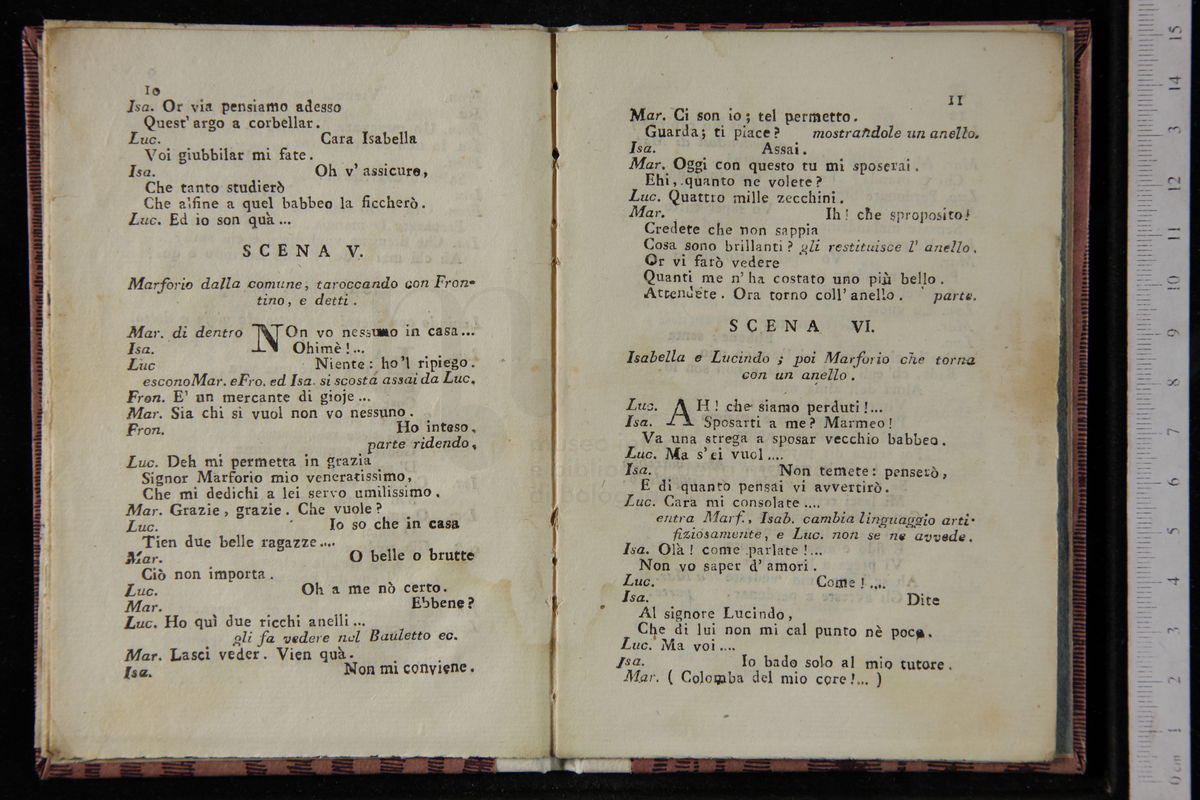 10
Isa. Or via pensiamo adesso
Quest' argo a corbellar.
Luc. Cara Isabella
Voi giubbilar mi fate.
Isa. Oh v' assicuro,
Che tanto studierò
Che alfine a quel babbeo la ficcherò.
Luc. Ed io son quà ...
SCENA V.
Marforio dalla comune, taroccando con Fron-
tino, e detti.
Mar. di dentro NOn vo nessuno in casa...
Isa. Ohimè!...
Luc Niente: ho'l ripiego.
esconoMar. eFro. ed Isa. si scosta assai da Luc.
Fron. E' un mercante di gioje ...
Mar. Sia chi si vuol non vo nessuno.
Fron. Ho inteso.
parte ridendo.
Luc. Deh mi permetta in grazia
Signor Marforio mio veneratissimo,
Che mi dedichi a lei servo umilissimo.
Mar. Grazie, grazie. Che vuole?
Luc. Io so che in casa
Tien due belle ragazze....
Mar. O belle o brutte
Ciò non importa.
Luc. Oh a me nò certo.
Mar. Ebbene?
Luc. Ho quì due ricchi anelli...
gli fa vedere nel Bauletto ec.
Mar. Lasci veder. Vien quà.
Isa. Non mi conviene.
11
Mar. Ci son io; tel permetto.
Guarda; ti piace? mostrandole un anello.
Isa. Assai.
Mar. Oggi con questo tu mi sposerai.
Ehi, quanto ne volete?
Luc. Quattro mille zecchini.
Mar. Ih! che sproposito!
Credete che non sappia
Cosa sono brillanti? gli restituisce l' anello.
Or vi farò vedere
Quanti me n' ha costato uno più bello.
Attendete. Ora torno coll' anello. parte.
SCENA VI.
Isabella e Lucindo; poi Marforio che torna
con un anello.
Luc. AH! che siamo perduti!...
Isa. Sposarti a me? Marmeo!
Va una strega a sposar vecchio babbeo.
Luc. Ma s' ei vuol....
Isa. Non temete: penserò,
E di quanto pensai vi avvertirò.
Luc. Cara mi consolate....
entra Marf., Isab. cambia linguaggio arti-
fiziosamente, e Luc. non se ne avvede.
Isa. Olà! come parlate!...
Non vo saper d' amori.
Luc. Come!....
Isa. Dite
Al signore Lucindo,
Che di lui non mi cal punto nè poco.
Luc. Ma voi....
Isa. Io bado solo al mio tutore.
Mar. ( Colomba del mio core!... )